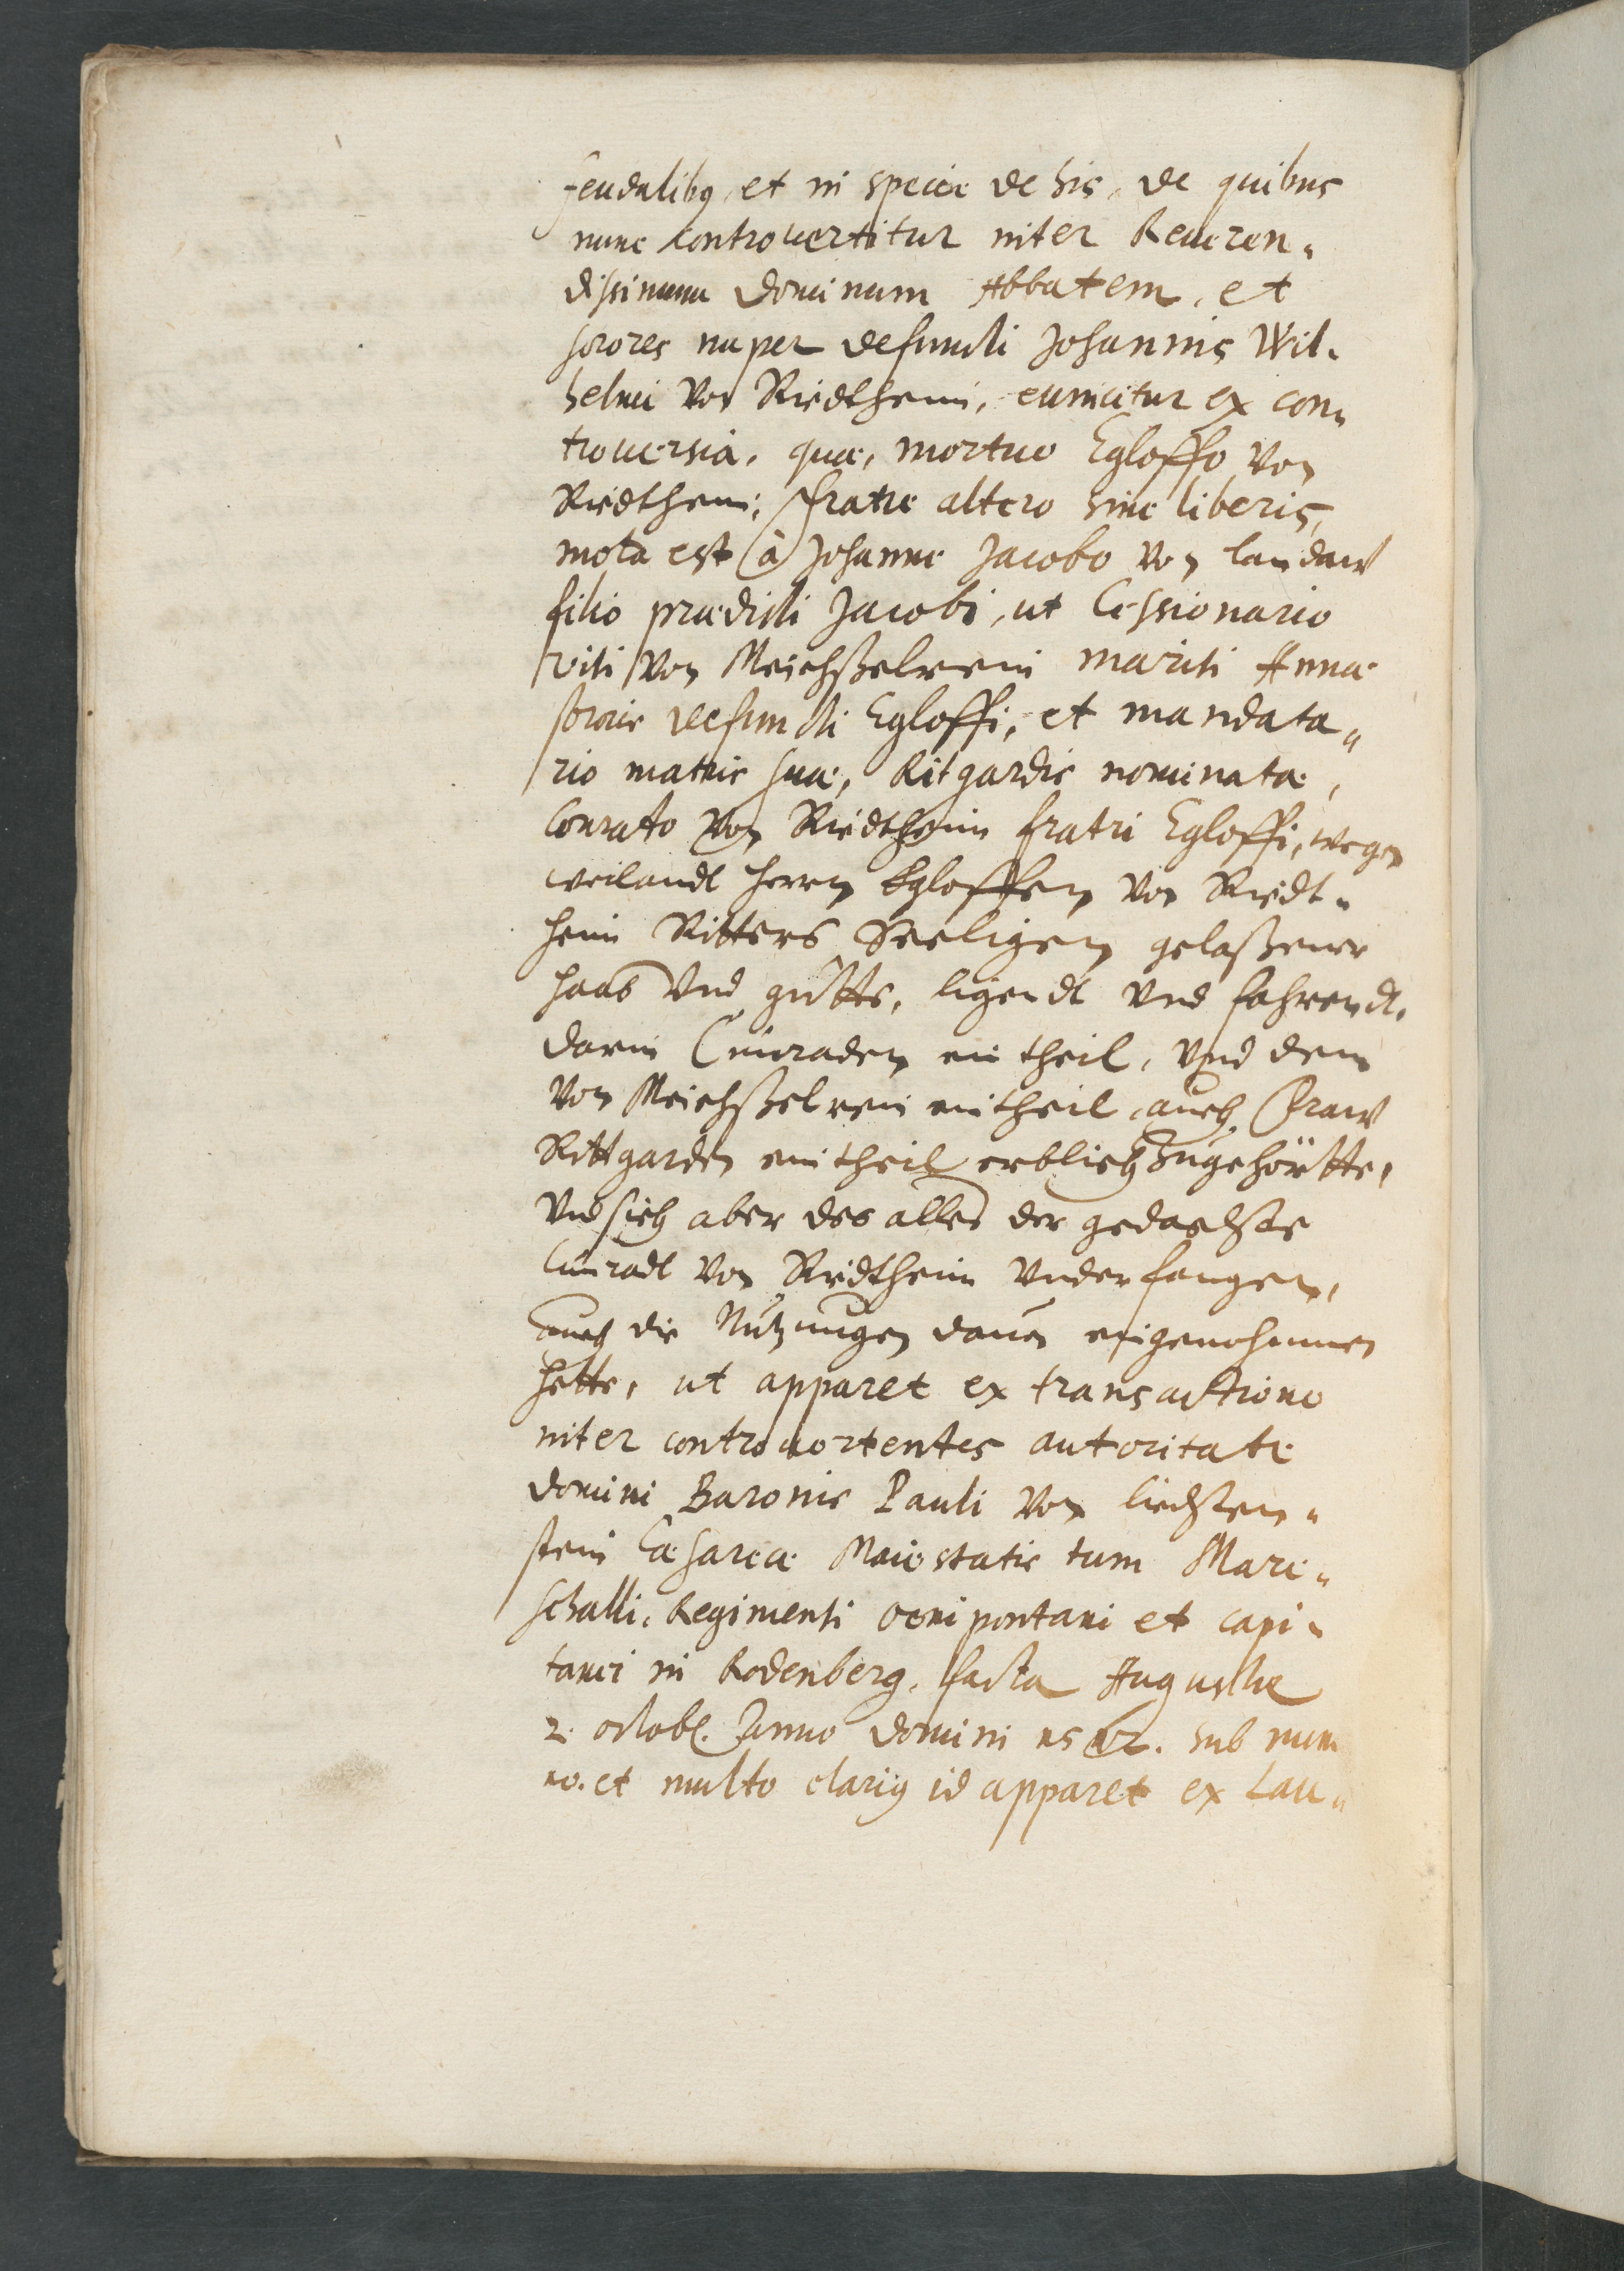 feudalibus, et in specie de his, de quibus
nunc controuertitur inter Reueren„
dissimum Dominum Abbatem, et
sorores nuper defuncti Johannis Wil„
helmi von Riedtheim, euincitur ex con„
trouersia, quæ, mortuo Egloffo von
Riedtheim, fratre altero sine liberis,
mota est à Johanne Jacobo von Landaw
filio prædicti Jacobi, ut Cessionario
viti von Reichßelrein mariti Annæ
sororis defuncti Egloffi, et mandata„
rio matris suæ, Ritgardis nominatæ,
Conrato von Riedtheim fratri Egloffi, wegen
weilandt herrn Egloffen von Riedt„
heim Ritters Seeligen gelaßener
haab vnd gütts, ligendt vnd fahrendt,
darin Cunraden ein theil, vnd dem
von Reichßelrein ein theil, auch fraw
Rittgarden ein theil erblich zugehörtte,
vnd sich aber des alles der gedachte
Cunradt von Riedtheim vnderfangen,
auch die Nutzungen dauon eingenohmmen
hette, ut apparet ex transactione
inter controuertentes autoritate
Domini Baronis Pauli von Liechten„
stein Cæsareæ Maiestatis tum Mare„
schalli, Regimenti oenipontani et capi„
tanei in Rodenberg, facta Augustæ
2. octob. Anno Domini 1512. sub num
10. et multo clarius id apparet ex Lau„